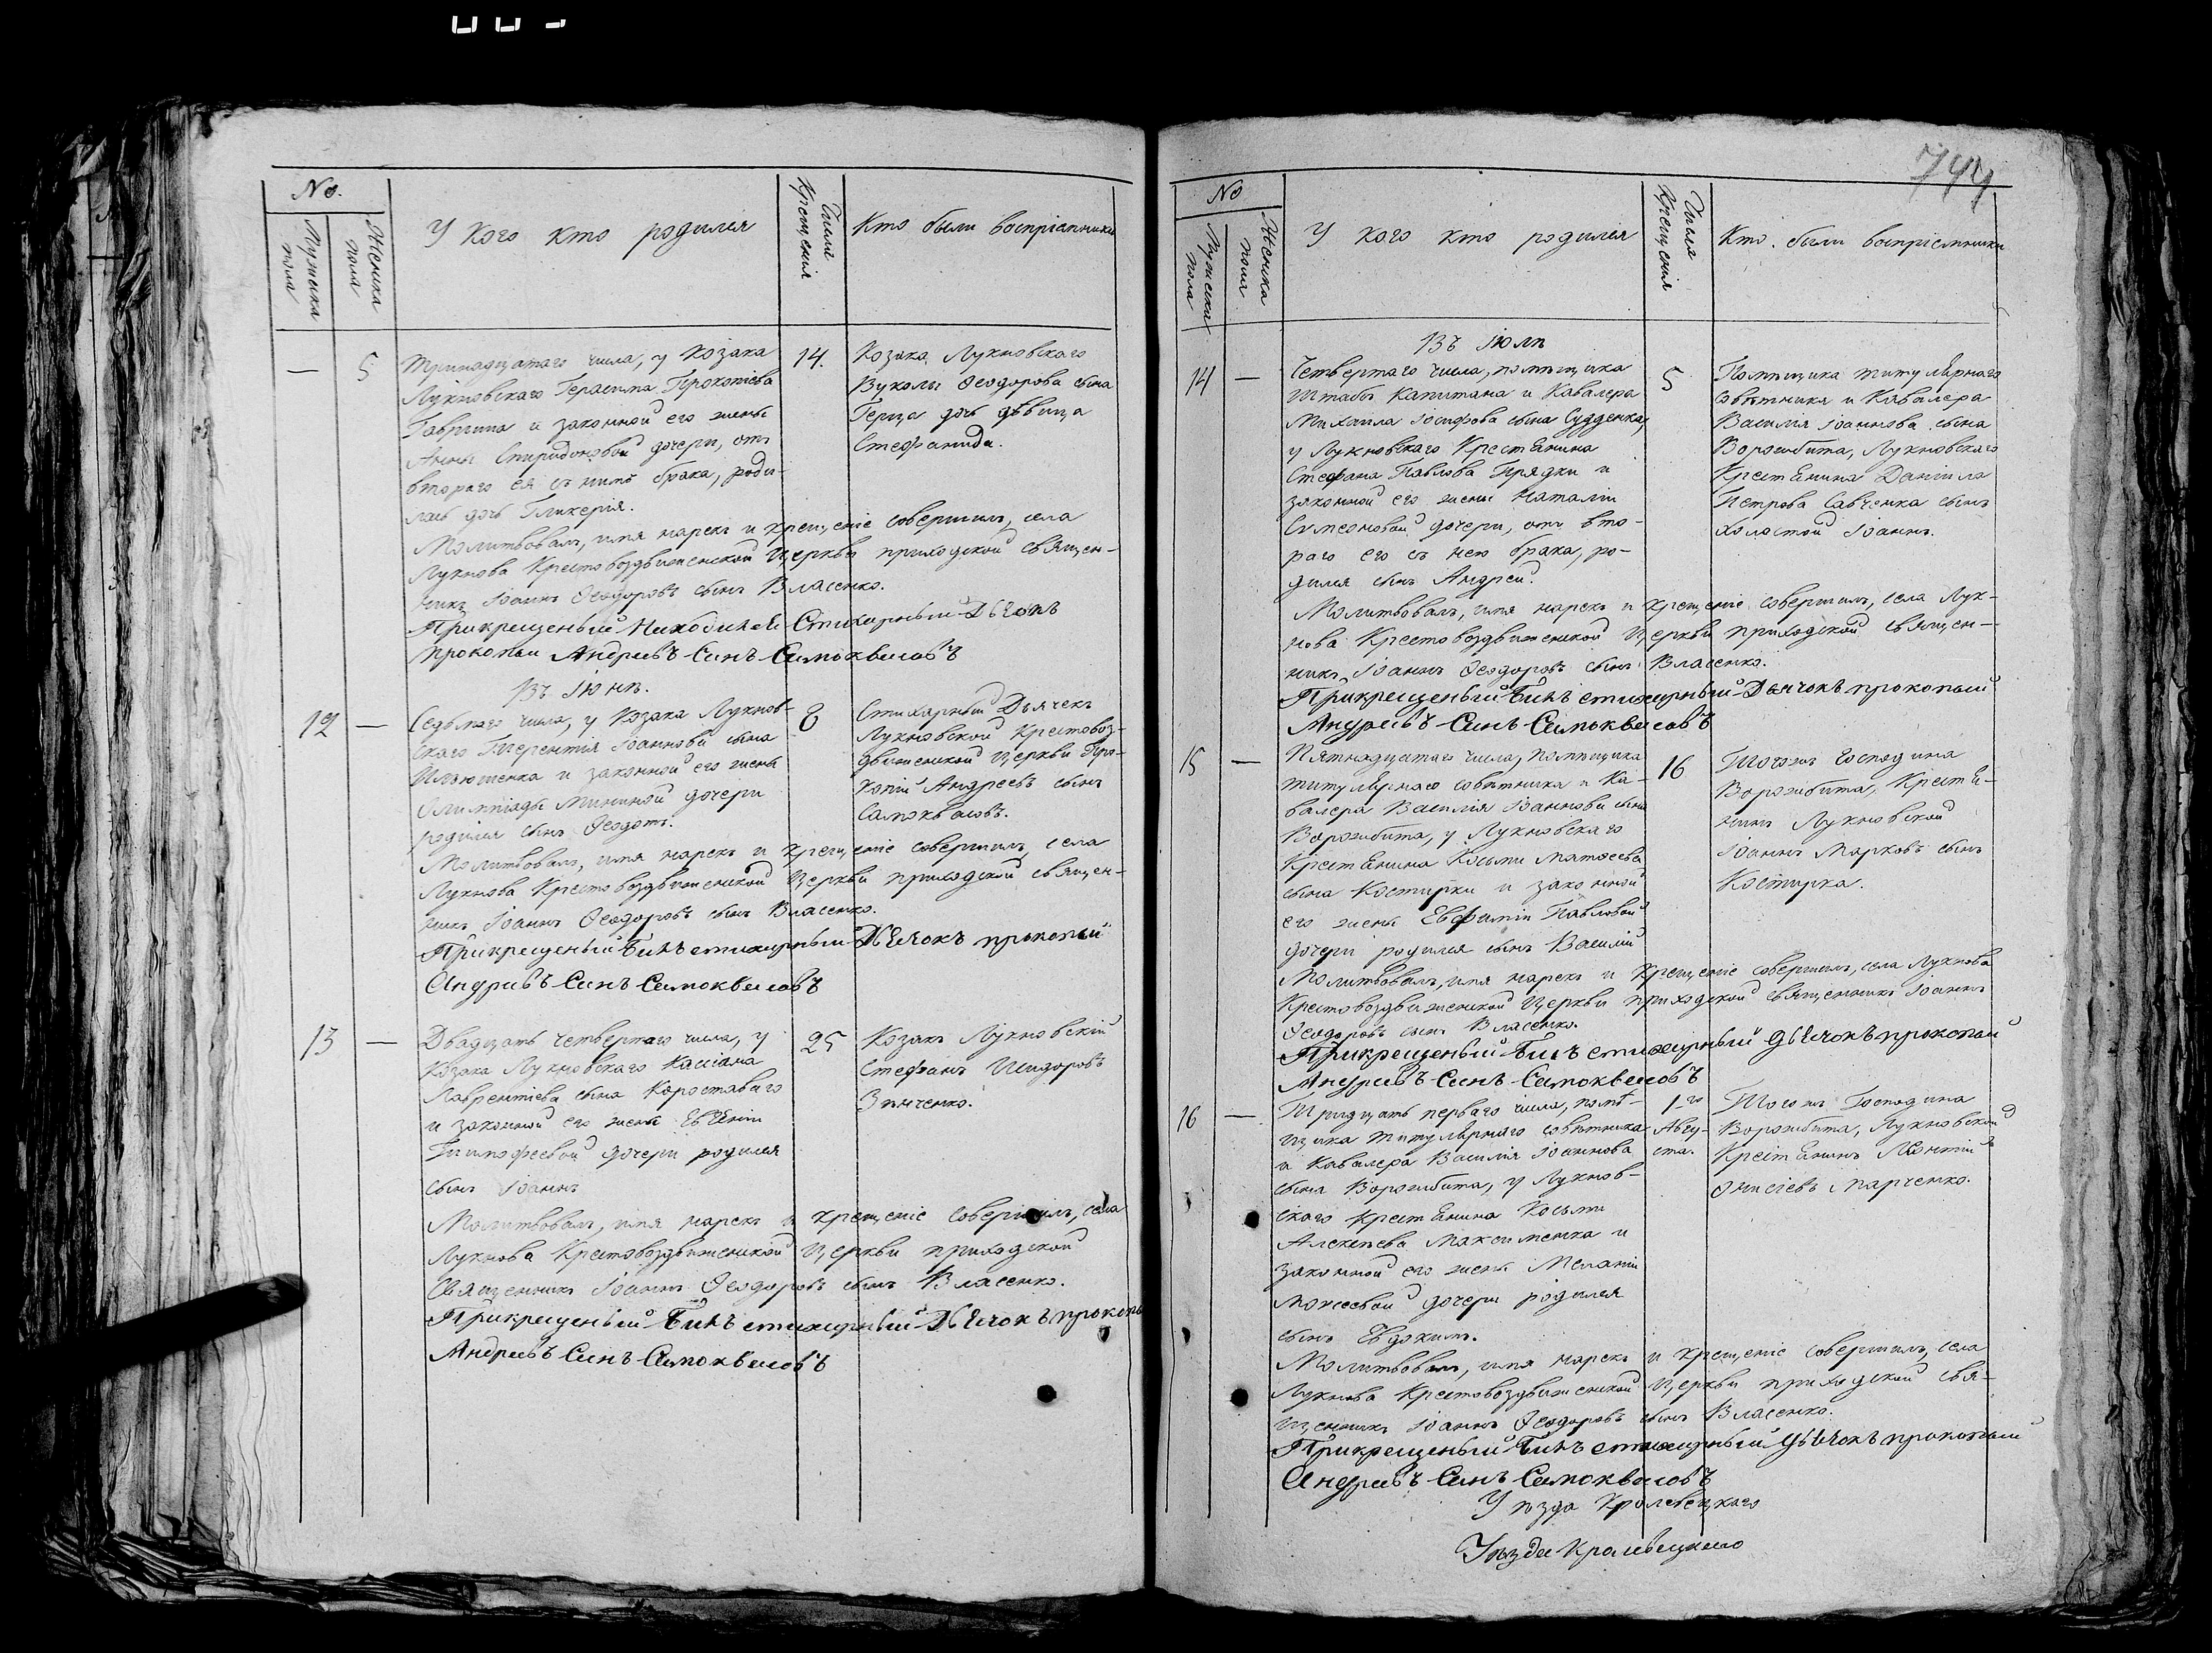 No.
Мужеска пола
Женска пола
У кого кто родился
Числа Крещенія
Кто были воспріемники
— 5
Тринадцатаго числа, у Козака
Лукновскаго Герасима Прокопіева
и законной его жены
Анны Спиридоновой дочери, отъ
втораго ея съ нимъ брака, роди-
лась дочь Гликерія.
14.
Козака Лукновскаго
Вуколы Ѳеодорова сына
дочь дѣвица
Стефанида.
Молитвовалъ, имя нарекъ и крещеніе совершилъ, села
Лукнова Крестовоздвиженской Церкви приходской священ-
никъ Іоаннъ Ѳеодоровъ сынъ Власенко.
Прикрещеный Стихарный Дьечокъ
прокопыи Андріевъ Синъ Самоквасовъ
Въ Іюнѣ.
12 —
Седьмаго числа, у Козака Лукнов-
скаго Терентія Іоаннова сына
Ильюшенка и законной его жены
Олимпіады Мининой дочери
родился сынъ Ѳеодотъ.
8
Стихарный Дьячекъ
Лукновской Крестовоз-
движенской Церкви Про-
копій Андреевъ сынъ
Самоквасовъ.
Молитвовалъ, имя нарекъ и крещеніе совершилъ, села
Лукнова Крестовоздвиженской Церкви приходской священ-
никъ Іоаннъ Ѳеодоровъ сынъ Власенко.
Прикрещеный Билъ стихарный Дьечокъ прокопый
Андріевъ Синъ Самоквасовъ
13 —
Двадцать четвертаго числа, у
Козака Лукновскаго Касіана
Лаврентіева сына Короставаго
и законной его жены Евгеніи
Тимофеевой дочери родился
сынъ Іоаннъ
25
Козакъ Лукновскій
Стефанъ Исидоровъ
Зѣнченко.
Молитвовалъ, имя нарекъ и крещеніе совершилъ, села
Лукнова Крестовоздвиженской Церкви приходской
Священникъ Іоаннъ Ѳеодоровъ сынъ Власенко.
Прикрещеный Билъ стихарный Дьечокъ прокопы
Андріевъ Синъ Самоквасовъ
744
No
Мужеска пола
Женска пола
У кого кто родился
Числа Крещенія
Кто были воспріемники
Въ Іюлѣ
14 —
Четвертаго числа, помѣщика
Штабъ Капитана и Кавалера
Михаила Іосифова сына Судденка,
у Лукновскаго Крестьянина
Стефана Павлова Прядки и
законной его жены Наталіи
Симеоновой дочери, отъ вто-
раго его съ нею брака, ро-
дился сынъ Андрей.
5
Помѣщика титулярнаго
совѣтника и Кавалера
Василія Іоаннова сына
Ворожбита, Лукновскаго
Крестьянина Даніила
Петрова Савченка сынъ
холостой Іоаннъ.
Молитвовалъ, имя нарекъ и крещеніе совершилъ, села Лук-
нова Крестовоздвиженской Церкви приходской священ-
никъ Іоаннъ Ѳеодоровъ сынъ Власенко.
Прикрещеный Билъ стихарный Дьячокъ прокопый
Андріевъ Синъ Самоквасовъ
15 —
Пятнадцатаго числа, Помѣщика
титулярнаго совѣтника и Ка-
валера Василія Іоаннова сына
Ворожбита, у Лукновскаго
Крестьянина Косьмы Матѳеева
сына Костирки и законной
его жены Евфиміи Павловой
дочери родился сынъ Василій
16
Тогожъ Господина
Ворожбита, Крестья-
нинъ Лукновской
Іоаннъ Марковъ сынъ
Костирка.
Молитвовалъ, имя нарекъ и Крещеніе совершилъ, села Лукнова
Крестовоздвиженской Церкви приходской священникъ Іоаннъ
Ѳеодоровъ сынъ Власенко.
Прикрещеный Билъ стихарный дьечокъ прокопый
Андріевъ Синъ Самоквасовъ
16 —
Тридцать перваго числа, помѣ-
щика титулярнаго совѣтника
и Кавалера Василія Іоаннова
сына Ворожбита, у Лукнов-
скаго Крестьянина Косьмы
Алексѣева Максименка и
законной его жены Меланіи
Моисеевой дочери родился
сынъ Евдокимъ.
1-го
Авгу-
ста.
Тогожъ Господина
Ворожбита, Лукновской
Крестьянинъ Леонтій
Онисіевъ Марченко.
Молитвовалъ, имя нарекъ и крещеніе совершилъ, села
Лукнова Крестовоздвиженской Церкви приходской свя-
щенникъ Іоаннъ Ѳеодоровъ сынъ Власенко.
Прикрещеный Билъ стихарный дьечокъ прокопый
Андріевъ Синъ Самоквасовъ
Уѣзда Кролевецкаго
Уѣзда Кролевецкаго